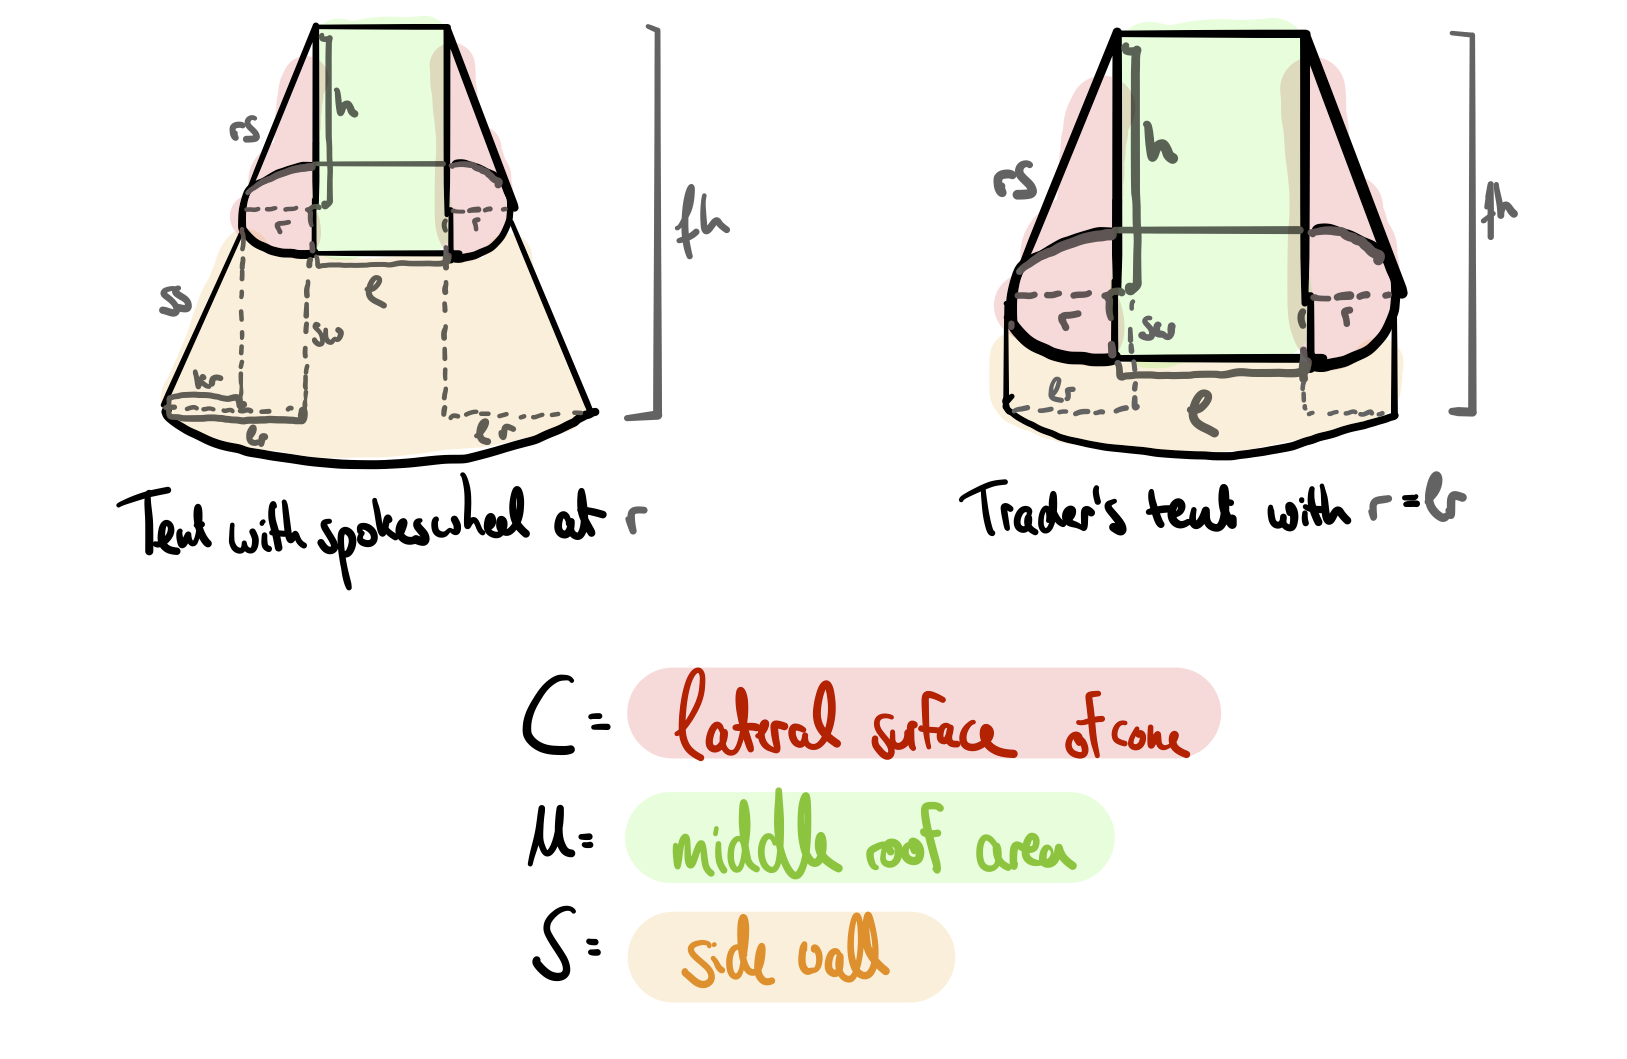 h
rs
fh
r
r
e
ss
sw
kr
er
er
Tent with spokeswheel at r
h
rs
fh
r
r
sw
er
e
Trader's tent with r = er
C = lateral surface of cone
M = middle roof area
S = side wall